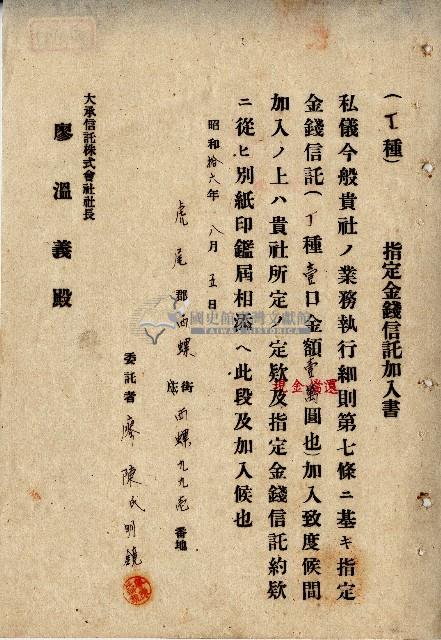 (丁種)　指定金錢信託加入書
私儀今般貴社ノ業務執行細則第七條ニ基キ指定
金錢信託(丁種壹口金額壹萬圓也)加入致度候間
現金償還
加入ノ上ハ貴社所定ノ定欵及指定金錢信託約欵
ニ從ヒ別紙印鑑屆相添ヘ此段及加入候也
昭和拾六年八月五日
虎尾郡西螺街庄西螺九九壱番地
委託者 廖陳氏明鏡
大承信託株式會社社長
廖溫義殿
國史館臺灣文獻館
TAIWAN HISTORICA